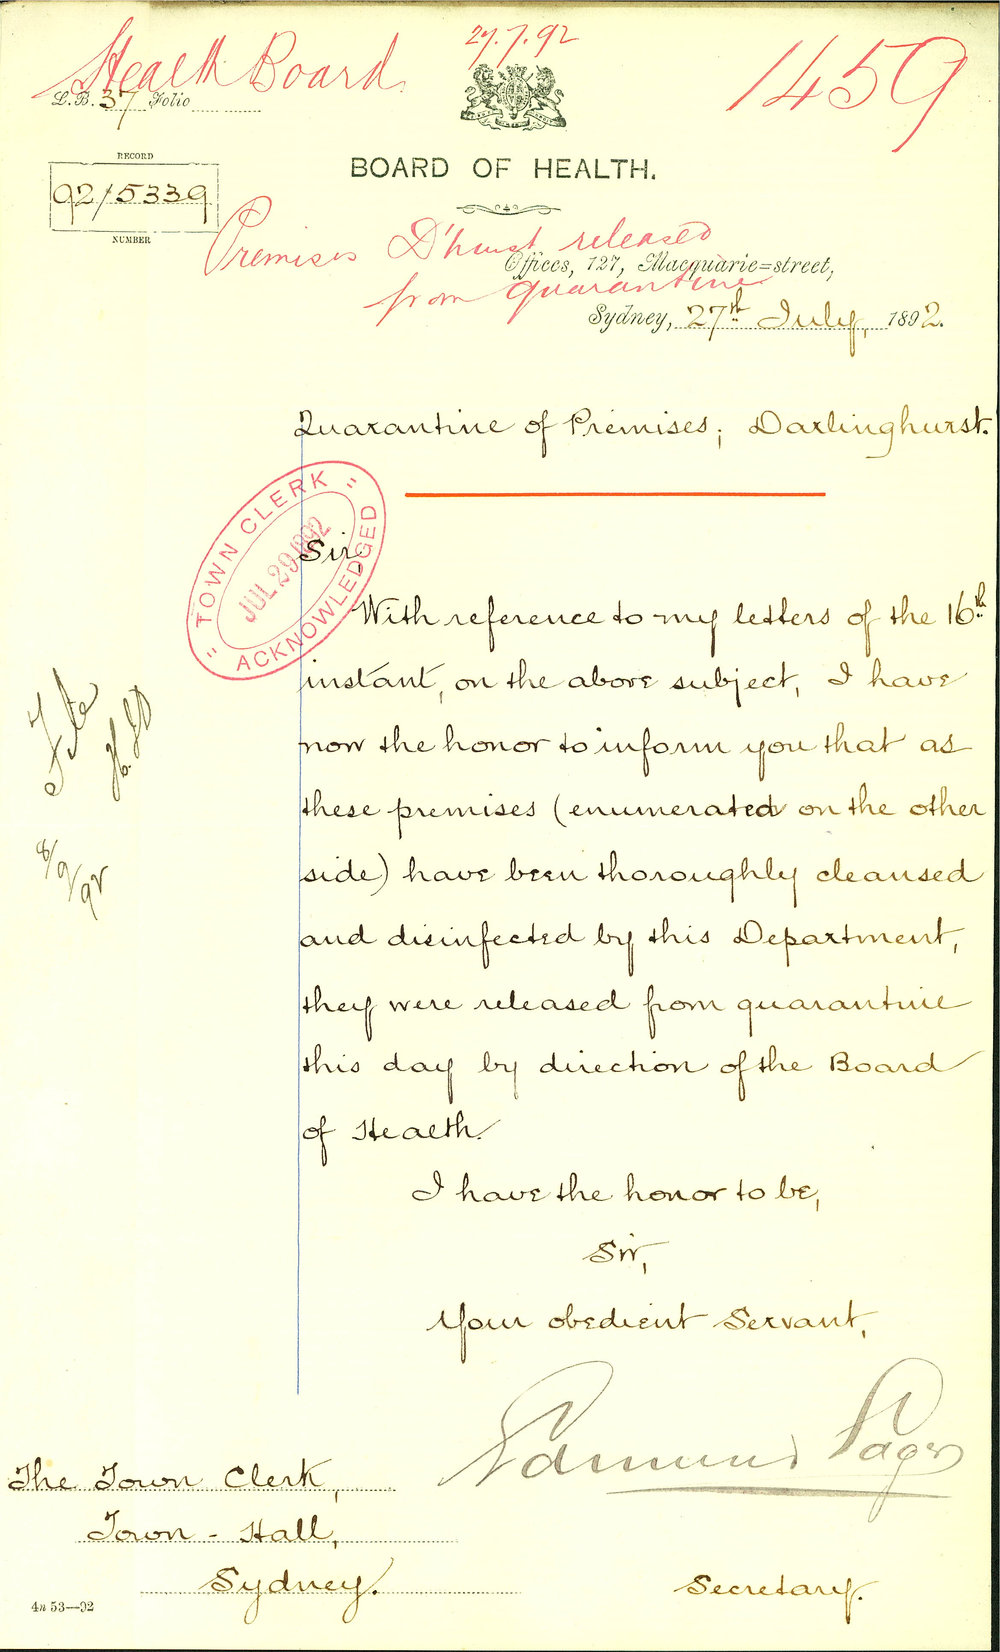 Health Board
27.7.92
1459
L.B. 37 Folio
BOARD OF HEALTH.
RECORD
92/5339
NUMBER
Premises D'hurst released
from quarantine
Offices, 127, Macquarie=street,
Sydney, 27th July, 1892.
Quarantine of Premises; Darlinghurst.
"TOWN CLERK"
JUL 29 1892
ACKNOWLEDGED
Sir,
With reference to my letters of the 16th
instant, on the above subject, I have
now the honor to inform you that as
these premises (enumerated on the other
side) have been thoroughly cleansed
and disinfected by this Department,
they were released from quarantine
this day by direction of the Board
of Health.
I have the honor to be,
Sir,
Your obedient Servant,
Edmund Sager
Secretary.
File
8/9/92
The Town Clerk,
Town-Hall,
Sydney.
4n 53—92